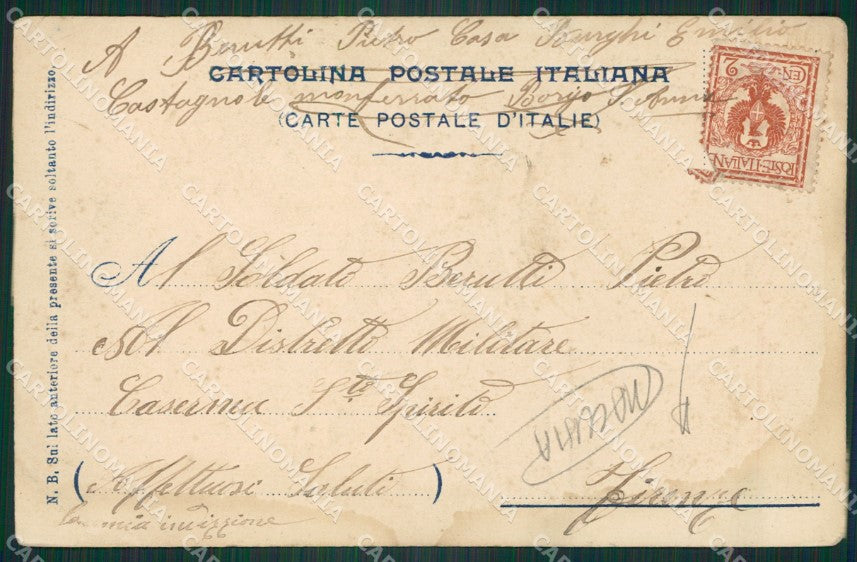 A Berutti Pietro Casa Emilio
CARTOLINA POSTALE ITALIANA
Castagnole monferrato Borgo S. Anna
(CARTE POSTALE D'ITALIE)
2
CEN
POSTE ITALIAN
N. B. Sul lato anteriore della presente si scrive soltanto l'indirizzo.
Al Soldato Berutti Pietro
Al Distretto Militare
Caserma S.to Spirito
(Affettuosi Saluti)
Firenze
la mia indizzione
CARTOLINOMANIA